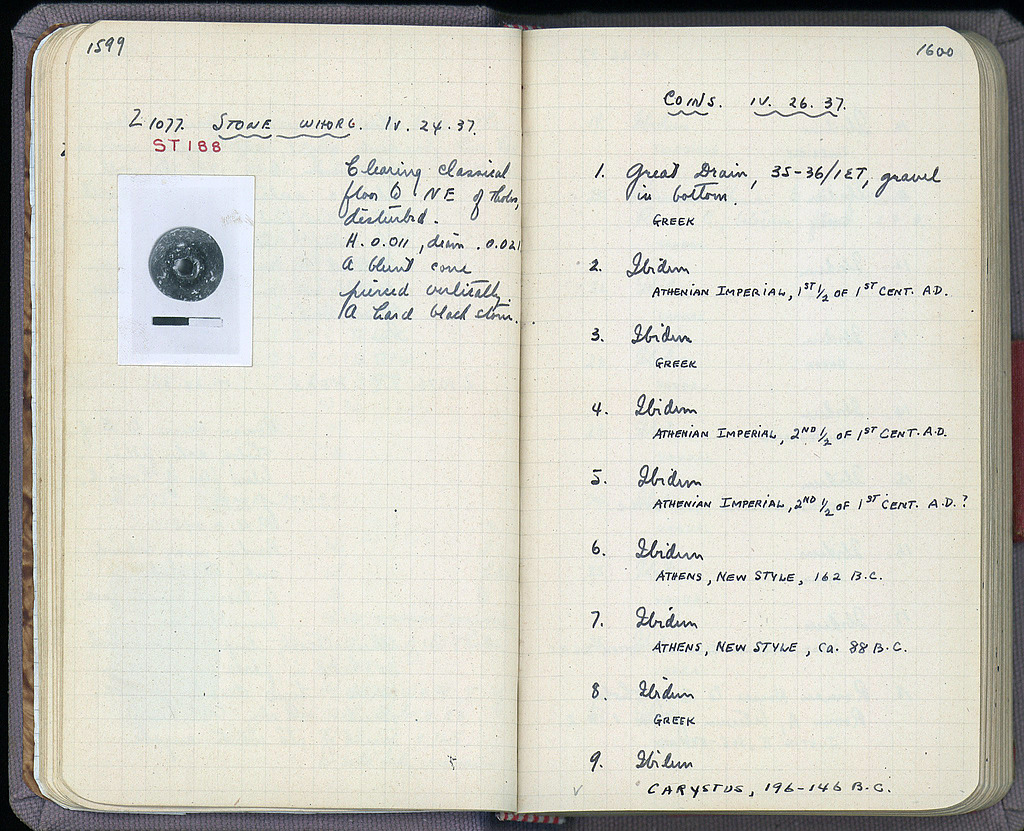 1599
Z 1077. STONE WHORL. IV. 24. 37.
ST 188
Clearing classical
floor NE of Tholos,
disturbed.
H. 0.011, diam. 0.021
A blunt cone
pierced vertically.
A hard black stone.
1600
COINS. IV. 26. 37.
1. Great Drain, 35-36/ΙΣΤ, gravel
in bottom.
GREEK
2. Ibidem
ATHENIAN IMPERIAL, 1ST 1/2 OF 1ST CENT. A.D.
3. Ibidem
GREEK
4. Ibidem
ATHENIAN IMPERIAL, 2ND 1/2 OF 1ST CENT. A.D.
5. Ibidem
ATHENIAN IMPERIAL, 2ND 1/2 OF 1ST CENT. A.D. ?
6. Ibidem
ATHENS, NEW STYLE, 162 B.C.
7. Ibidem
ATHENS, NEW STYLE, Ca. 88 B.C.
8. Ibidem
GREEK
9. Ibidem
CARYSTUS, 196-146 B.C.